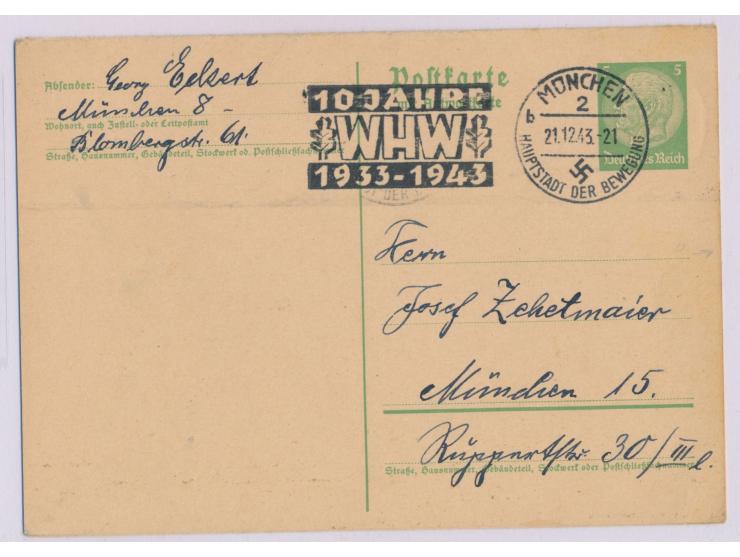 Absender: Georg Eckert
München 8 -
Wohnort, auch Zustell- oder Leitpostamt
Blombergstr. 61.
Straße, Hausnummer, Gebäudeteil, Stockwerk od. Postschließfach
Postkarte
10 JAHRE
WHW
1933-1943
MÜNCHEN
2
b
21.12.43.-21
HAUPTSTADT DER BEWEGUNG
5
Deutsches Reich
Herrn
Josef Zehetmaier
München 15.
Ruppertstr. 30/III l.
Straße, Hausnummer, Gebäudeteil, Stockwerk oder Postschließfachnummer